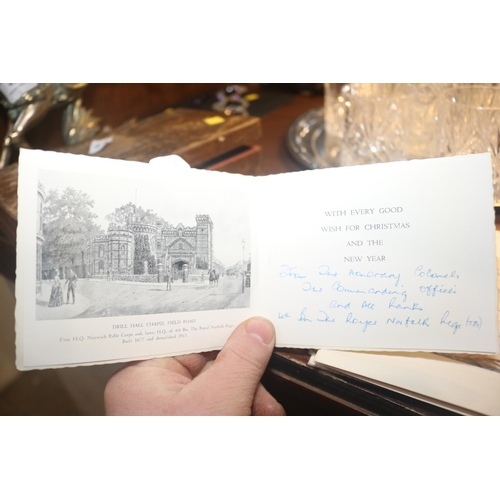 DRILL HALL CHAPEL FIELD ROAD
First H.Q. Norwich Rifle Corps and, later, H.Q. of 4th Bn The Royal Norfolk Regt
Built 1877 and demolished 1963
WITH EVERY GOOD
WISH FOR CHRISTMAS
AND THE
NEW YEAR
From The Honorary Colonels
The Commanding Officer
and All Ranks
4th Bn The Royal Norfolk Regt (TA)